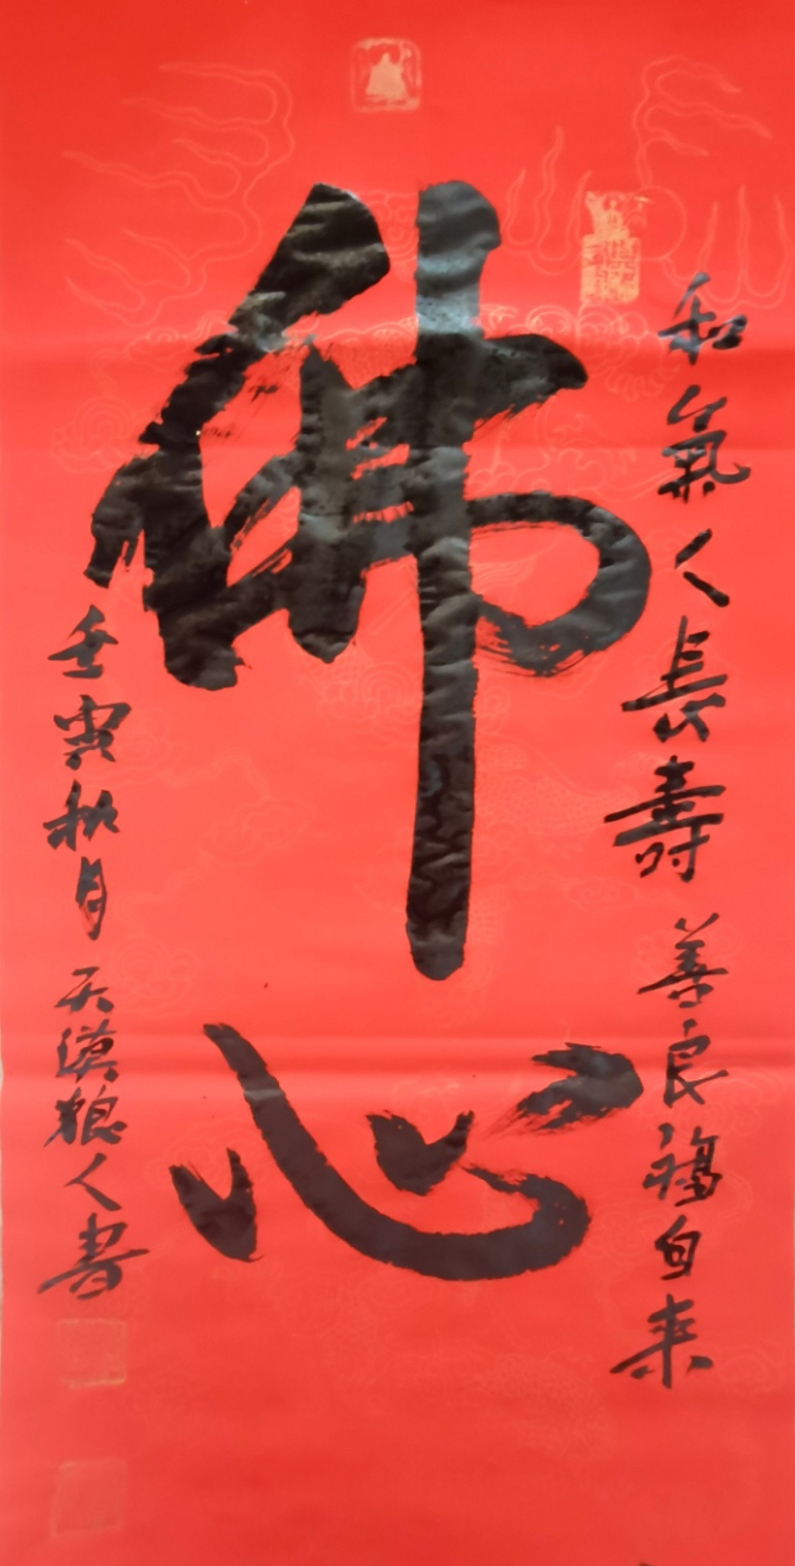 和氣人長壽 善良福自来
佛心
壬寅秋月 天漠狼人書